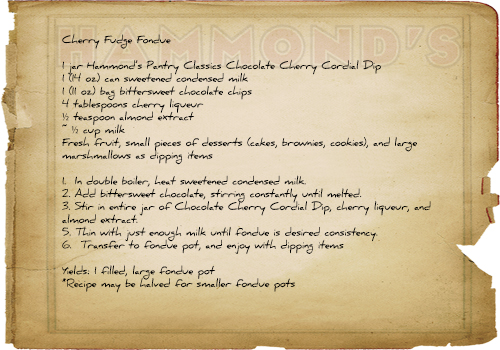 HAMMOND'S
Cherry Fudge Fondue
1 jar Hammond's Pantry Classics Chocolate Cherry Cordial Dip
1 (14 oz) can sweetened condensed milk
1 (11 oz) bag bittersweet chocolate chips
4 tablespoons cherry liqueur
½ teaspoon almond extract
~ ½ cup milk
Fresh fruit, small pieces of desserts (cakes, brownies, cookies), and large
marshmallows as dipping items
1. In double boiler, heat sweetened condensed milk.
2. Add bittersweet chocolate, stirring constantly until melted.
3. Stir in entire jar of Chocolate Cherry Cordial Dip, cherry liqueur, and
almond extract.
5. Thin with just enough milk until fondue is desired consistency.
6. Transfer to fondue pot, and enjoy with dipping items
Yields: 1 filled, large fondue pot
*Recipe may be halved for smaller fondue pots